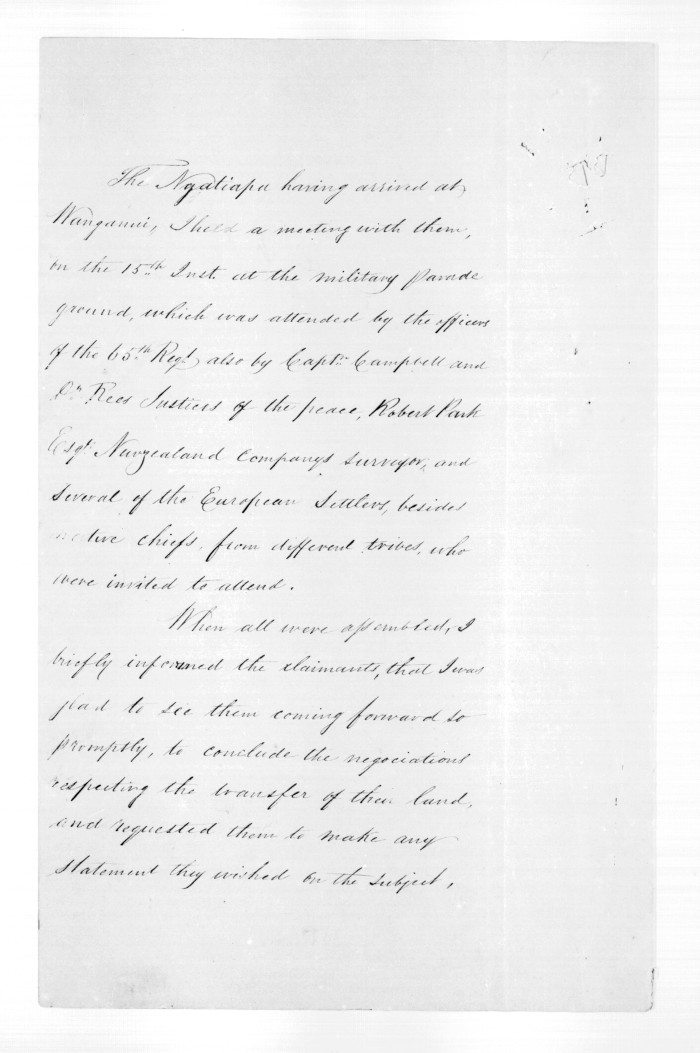 The Ngatiapa having arrived at
Wanganui, I held a meeting with them,
on the 15th Inst. at the military parade
ground, which was attended by the officers
of the 65th Regt also by Captn Campbell and
Dr Rees Justices of the peace, Robert Park
Esqr. Newzealand Companys surveyor, and
several of the European Settlers, besides
native chiefs, from different tribes, who
were invited to attend.
When all were assembled, I
briefly informed the claimants, that I was
glad to see them coming forward so
promptly, to conclude the negociations
respecting the transfer of their land,
and requested them to make any
statement they wished on the subject,